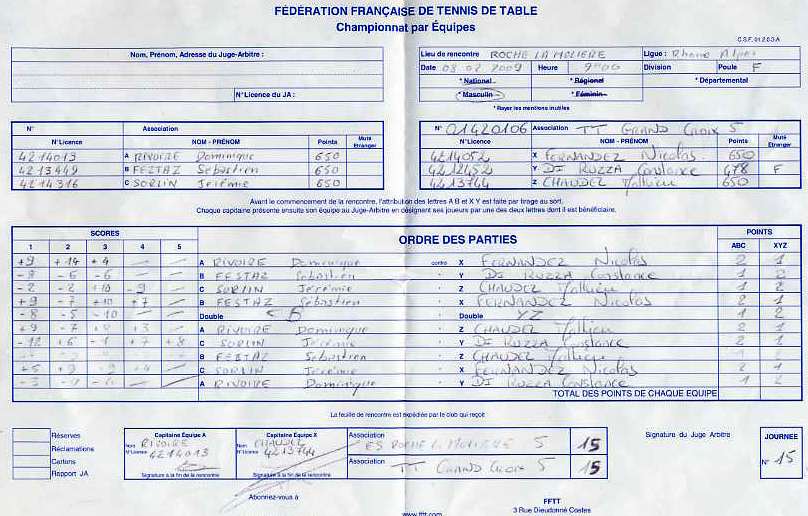 FÉDÉRATION FRANÇAISE DE TENNIS DE TABLE
Championnat par Équipes
C.S.F. 01.2.03.A
Nom, Prénom, Adresse du Juge-Arbitre :
N° Licence du JA :
Lieu de rencontre ROCHE LA MOLIERE Ligue : Rhone Alpes
Date 08 02 2009 Heure 9h00 Division Poule F
* National * Régional * Départemental
* Masculin * Féminin
* Rayer les mentions inutiles
N° Association
N° Licence NOM - PRÉNOM Points Muté Etranger
4214013 A RIVOIRE Dominique 650
4213449 B FESTAZ Sébastien 650
4214316 C SORLIN Jérémie 650
N° 01420106 Association TT GRAND CROIX 5
N° Licence NOM - PRÉNOM Points Muté Etranger
4214052 X FERNANDEZ Nicolas 650
4212452 Y DI RUZZA Constance 478 F
4213744 Z CHAUDEZ 650
Avant le commencement de la rencontre, l'attribution des lettres A B et X Y est fait par tirage au sort.
Chaque capitaine présente ensuite son équipe au Juge-Arbitre en désignant ses joueurs par une des deux lettres dont il est bénéficiaire.
SCORES ORDRE DES PARTIES POINTS
1 2 3 4 5 ABC XYZ
+9 +14 +4 — — A RIVOIRE Dominique contre X FERNANDEZ Nicolas 2 1
-7 -6 -6 — — B FESTAZ Sébastien Y DI RUZZA Constance 1 2
-2 -2 +10 -9 — C SORLIN Jérémie Z CHAUDEZ 1 2
+9 -7 +10 +7 — B FESTAZ Sébastien X FERNANDEZ Nicolas 2 1
-8 -5 -10 — Double CB Double YZ 1 2
+9 -7 +8 +3 — A RIVOIRE Dominique Z CHAUDEZ 2 1
-12 +6 -1 +7 +8 C SORLIN Jérémie Y DI RUZZA Constance 2 1
B FESTAZ Sébastien Z CHAUDEZ 1 2
+5 +9 +4 — C SORLIN Jérémie X FERNANDEZ Nicolas 2 1
A RIVOIRE Dominique Y DI RUZZA Constance 1 2
TOTAL DES POINTS DE CHAQUE EQUIPE
La feuille de rencontre est expédiée par le club qui reçoit
Réserves
Réclamations
Cartons
Rapport JA
Capitaine Equipe A
Nom RIVOIRE
N° Licence 4214013
Signature à la fin de la rencontre
Capitaine Equipe X
Nom CHAUDEZ
N° Licence 4213744
Signature à la fin de la rencontre
Association ES ROCHE LA MOLIERE 5 15
Association TT GRAND CROIX 5 15
Signature du Juge Arbitre
JOURNEE
N° 15
Abonnez-vous à
www.fftt.com
FFTT
3 Rue Dieudonné Costes